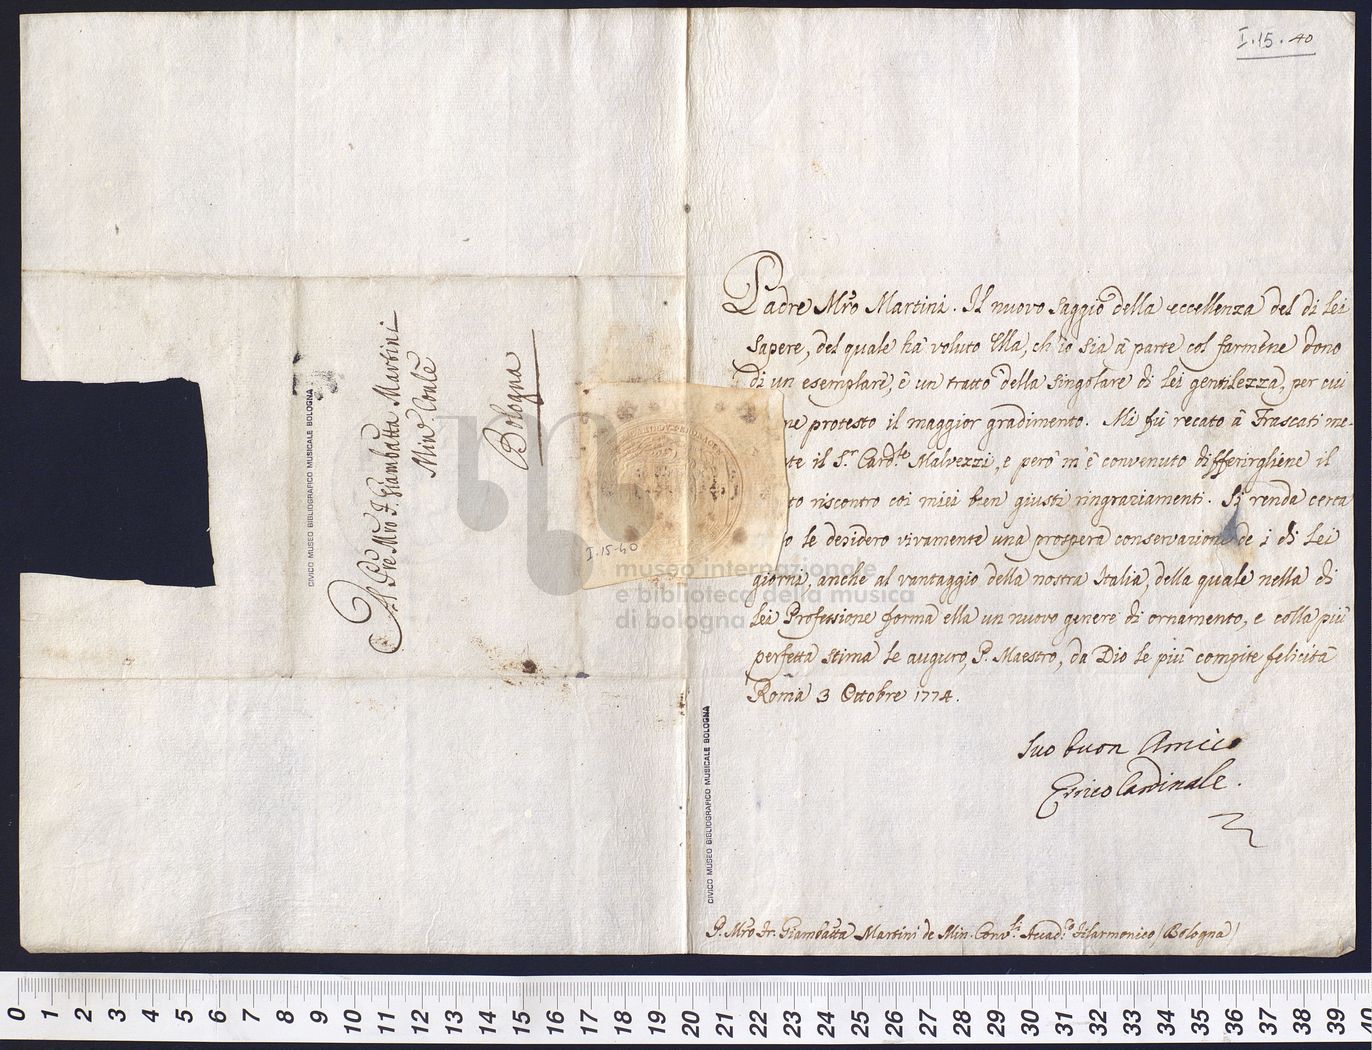 I.15.40
Padre Mro Martini. Il nuovo saggio della eccellenza del di Lei
sapere, del quale hà voluto Ella, ch'io sia à parte col farmene dono
di un esemplare, è un tratto della singolare di Lei gentilezza, per cui
ne protesto il maggior gradimento. Mi fù recato à Frascati me-
te il Sr. Cardle Malvezzi, e però m'è convenuto differirgliene il
to riscontro coi miei ben giusti ringraziamenti. Si renda certa
o le desidero vivamente una prospera conservazione de i di Lei
giorni, anche al vantaggio della nostra Italia, della quale nella di
Lei Professione forma ella un nuovo genere di ornamento, e colla più
perfetta stima le auguro, P. Maestro, da Dio le più compite felicità
Roma 3 Ottobre 1774.
Suo buon Amico
Errico Cardinale.
P. Mro Fr. Giambatta Martini de Min. Convli Accadco Filarmonico (Bologna)
Al Pre Mro F. Giambatta Martini
Min. Conle
Bologna
I.15-40
CIVICO MUSEO BIBLIOGRAFICO MUSICALE BOLOGNA
CIVICO MUSEO BIBLIOGRAFICO MUSICALE BOLOGNA
museo internazionale
e biblioteca della musica
di bologna
0 1 2 3 4 5 6 7 8 9 10 11 12 13 14 15 16 17 18 19 20 21 22 23 24 25 26 27 28 29 30 31 32 33 34 35 36 37 38 39 40